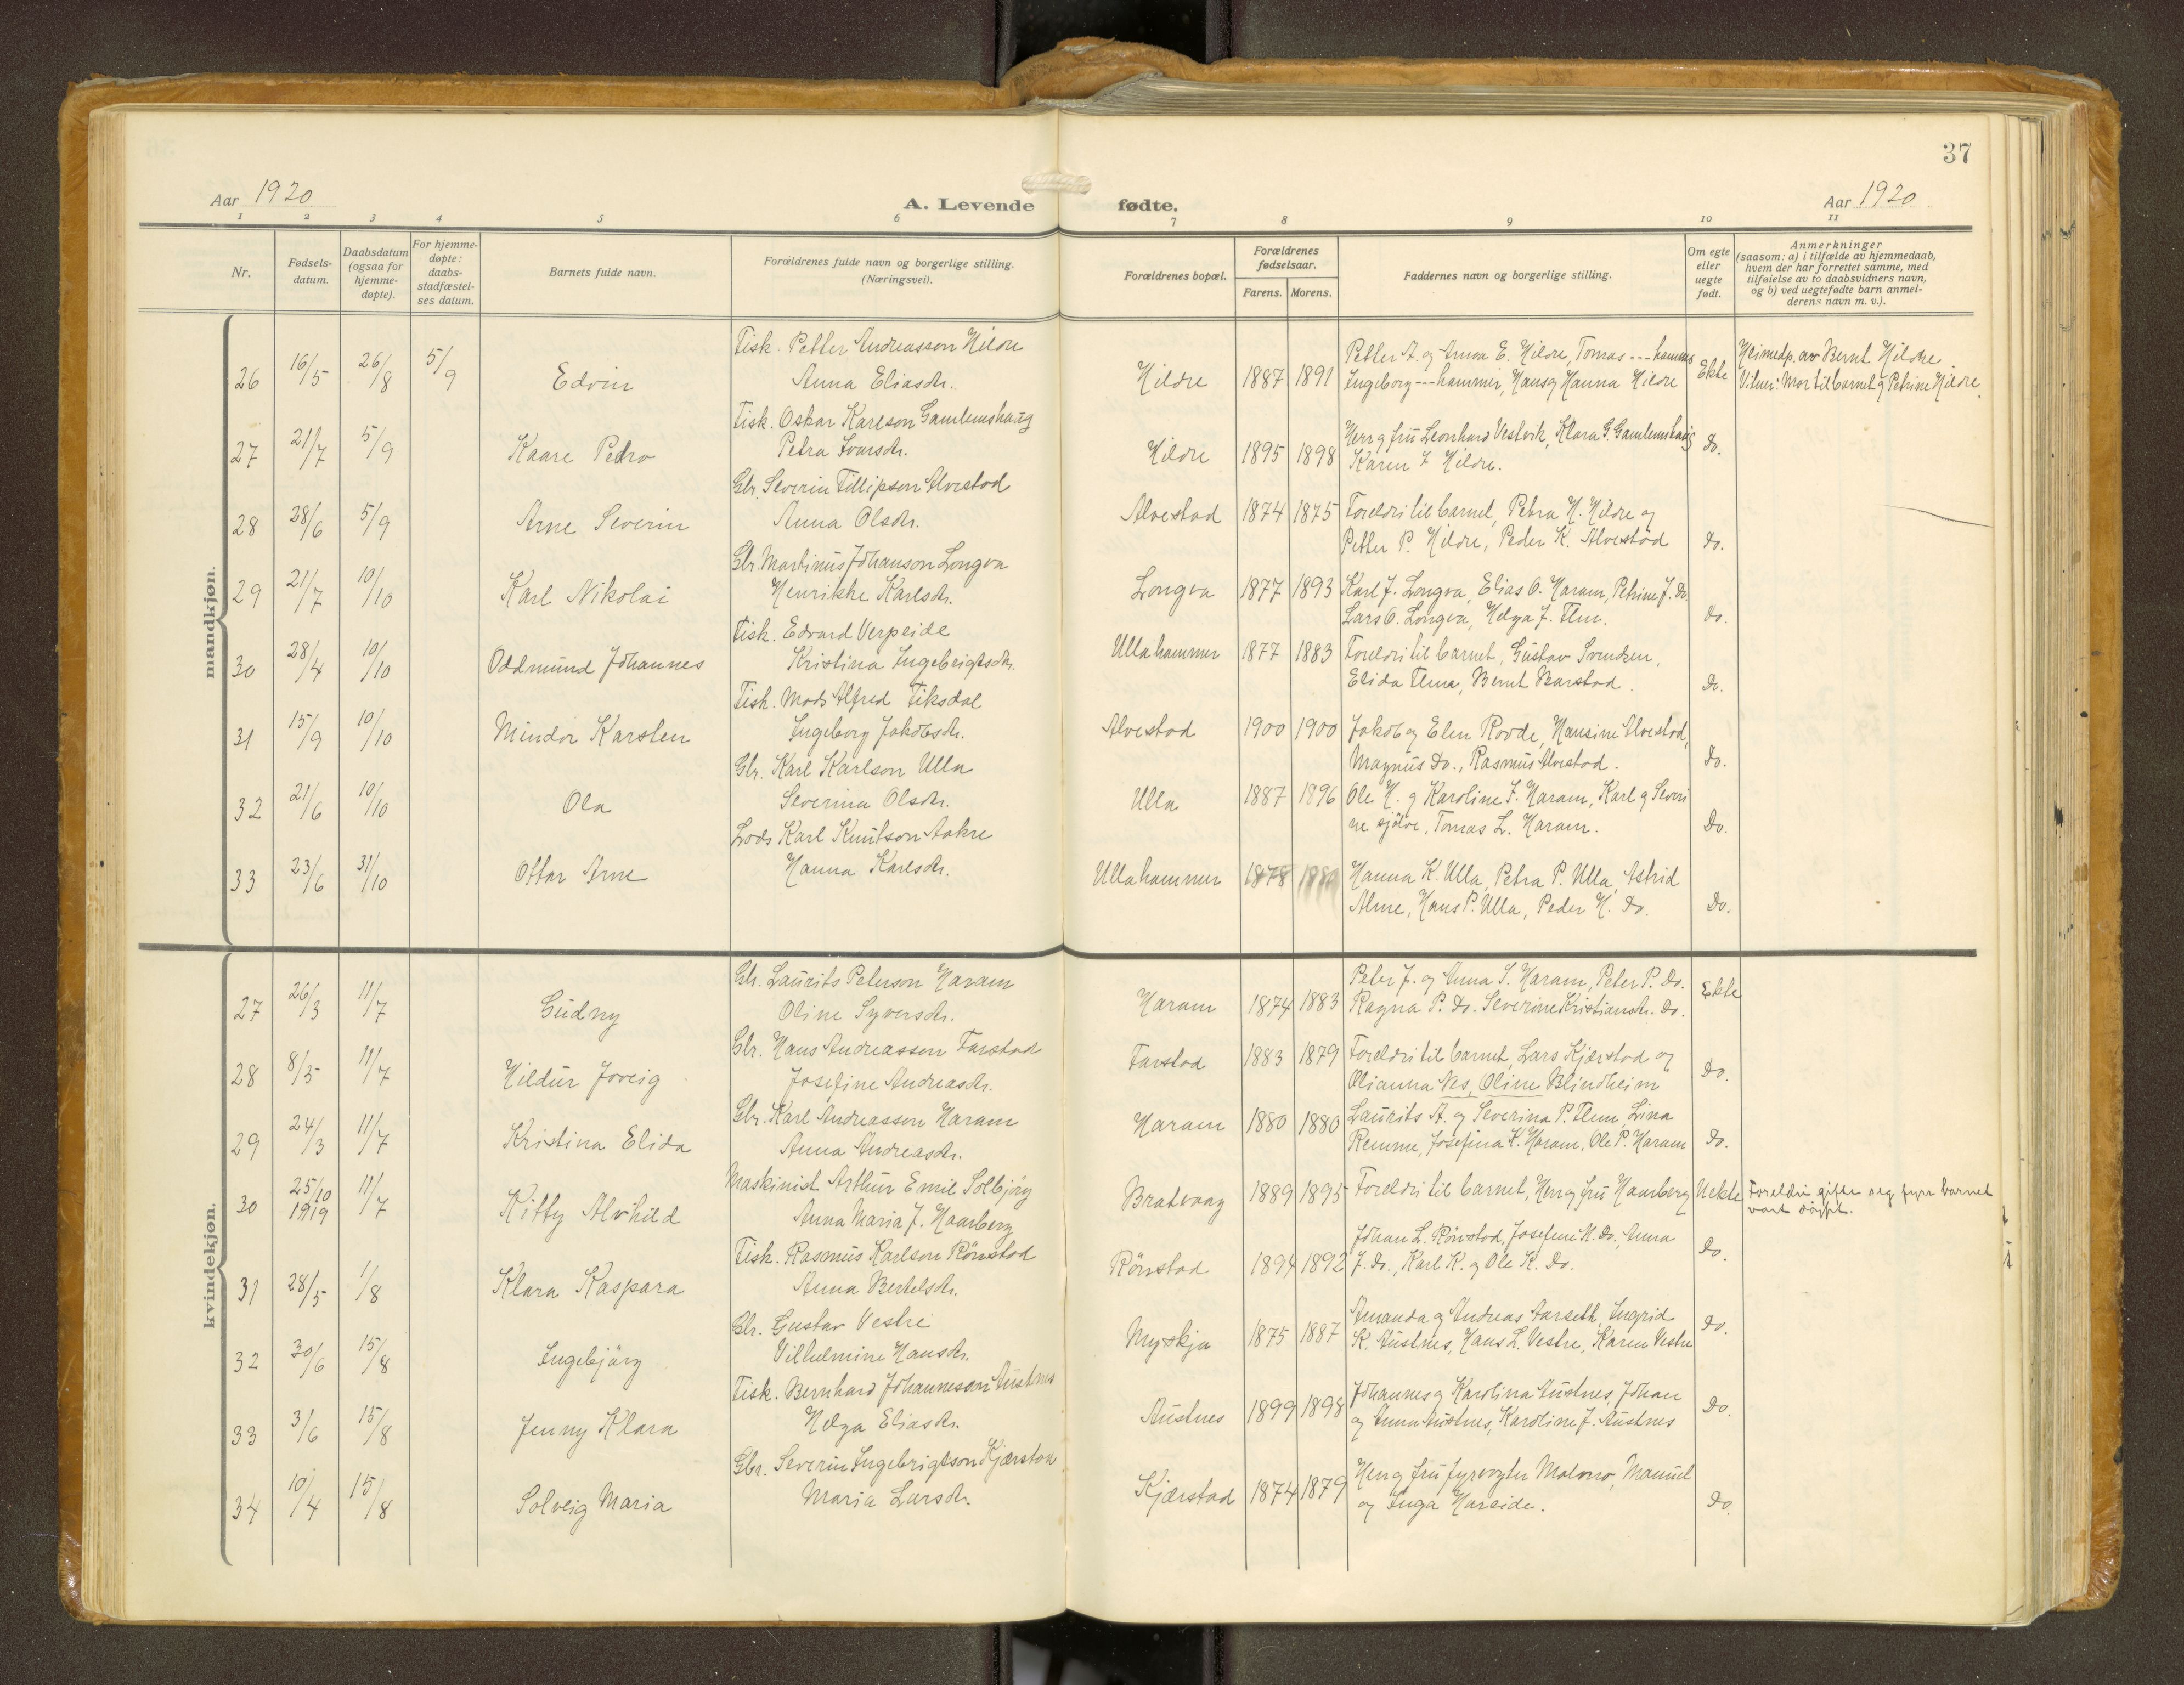 37
Aar 1920
A. Levende fødte.
Aar 1920
1 2 3 4 5 6 7 8 9 10 11
Nr.
Fødsels-
datum.
Daabsdatum
(ogsaa for
hjemme-
døpte).
For hjemme-
døpte:
daabs-
stadfæstel-
ses datum.
Barnets fulde navn.
Forældrenes fulde navn og borgerlige stilling.
(Næringsvei).
Forældrenes bopæl.
Forældrenes
fødselsaar.
Farens. Morens.
Faddernes navn og borgerlige stilling.
Om egte
eller
uegte
født.
Anmerkninger
(saasom: a) i tilfælde av hjemmedaab,
hvem der har forrettet samme, med
tilføielse av to daabsvidners navn,
og b) ved uegtefødte barn anmel-
derens navn m. v.).
maandkjøn.
Fisk. Petter Andreasson Hildre
26 16/5 26/8 5/9 Edvin Anna Eliasdr. Hildre 1887 1891 Petter A. og Anna E. Hildre, Tomas --- hammer
Ingeborg --- hammer, Hans og Hanna Hildre Ekte Heimedp. av Bernt Hildre
Vitner: Mor til barnet og Petrine Hildre.
Fisk. Oskar Karlson Gamlemshaug
27 21/7 5/9 Kaare Pedro Petra Ivarsdr. Hildre 1895 1898 Herr og fru Leonhard Vestvik, Klara G. Gamlemshaug
Karen I Hildre. Do.
Gbr. Severin Fillipson Alvestad
28 28/6 5/9 Arne Severin Anna Olsdr. Alvestad 1874 1875 Foreldri til barnet, Petra H. Hildre og
Petter P. Hildre, Peder K. Alvestad Do.
Gbr. Martinus Johanson Longva
29 21/7 10/10 Karl Nikolai Henrikke Karlsdr. Longva 1877 1893 Karl J. Longva, Elias O. Haram, Petrine J. Do.
Lars O. Longva, Helga J. Flem. Do.
Fisk. Edvard Verpeide
30 28/4 10/10 Oddmund Johannes Kristina Ingebrigtsdr. Ullahammer 1877 1883 Foreldri til barnet, Gustav Svendsen,
Elida Flem, Bernt Barstad. Do.
Fisk. Mads Alfred Fiksdal
31 15/9 10/10 Mindor Karsten Ingeborg Jakobsdr. Alvestad 1900 1900 Jakob og Elen Rovde, Hansine Alvestad,
Magnus Do., Rasmus Alvestad. Do.
Gbr. Karl Karlson Ulla
32 21/6 10/10 Ola Severina Olsdr. Ulla 1887 1896 Ole H. og Karoline J. Haram, Karl og Severi
ne sjølve, Tomas L. Haram. Do.
Lods Karl Knutson Aakre
33 23/6 31/10 Ottar Arne Hanna Karlsdr. Ullahammer 1878 Hanna K. Ulla, Petra P. Ulla, Astrid
Alme, Hans P. Ulla, Peder H. Do. Do.
kvindekjøn.
Gbr. Laurits Peterson Haram
27 26/3 11/7 Gudny Oline Syversdr. Haram 1874 1883 Peter J. og Anna S. Haram, Peter P. Do.
Ragna P. Do. Severine Kristiansdr. Do. Ekte
Gbr. Hans Andreassen Farstad
28 8/5 11/7 Hildur Joveig Josefine Andreasdr. Farstad 1883 1879 Foreldri til barnet, Lars Kjerstad og
Olianna Nes, Oline Blindheim Do.
Gbr. Karl Andreasson Haram
29 24/3 11/7 Kristina Elida Anna Andreasdr. Haram 1880 1880 Laurits A. og Severina P. Flem, Lina
Remme, Josefina K. Haram, Ole P. Haram Do.
Maskinist Arthur Emil Solbjörg
30 25/10 1919 11/7 Kitty Alvhild Anna Maria J. Haarberg Bratvaag 1889 1895 Foreldri til barnet, Herr og fru Haarberg Uekte Foreldri gifte seg fyrr barnet
vart døypt.
Fisk. Rasmus Karlson Rönstad
31 28/5 1/8 Klara Kaspara Anna Bertelsdr. Rönstad 1894 1892 Johan L. Rönstad, Josefine H. Do., Anna
J. Do., Karl K. og Ole K. Do. Do.
Gbr. Gustav Vestre
32 30/6 15/8 Ingebjörg Vilhelmine Hansdr. Myskja 1875 1887 Amanda og Andreas Aarseth, Ingrid
K. Austnes, Hans L. Vestre, Karen Vestre Do.
Fisk. Bernhard Johanneson Austnes
33 3/6 15/8 Jenny Klara Helga Eliasdr. Austnes 1899 1898 Johannes og Karolina Austnes, Johan
og Anna Austnes, Karoline J. Austnes Do.
Gbr. Severin Ingebrigtson Kjærstad
34 10/4 15/8 Solveig Maria Maria Larsdr. Kjærstad 1874 1879 Herr og fru fyrvogter Molovo, Manuel
og Inga Hareide. Do.